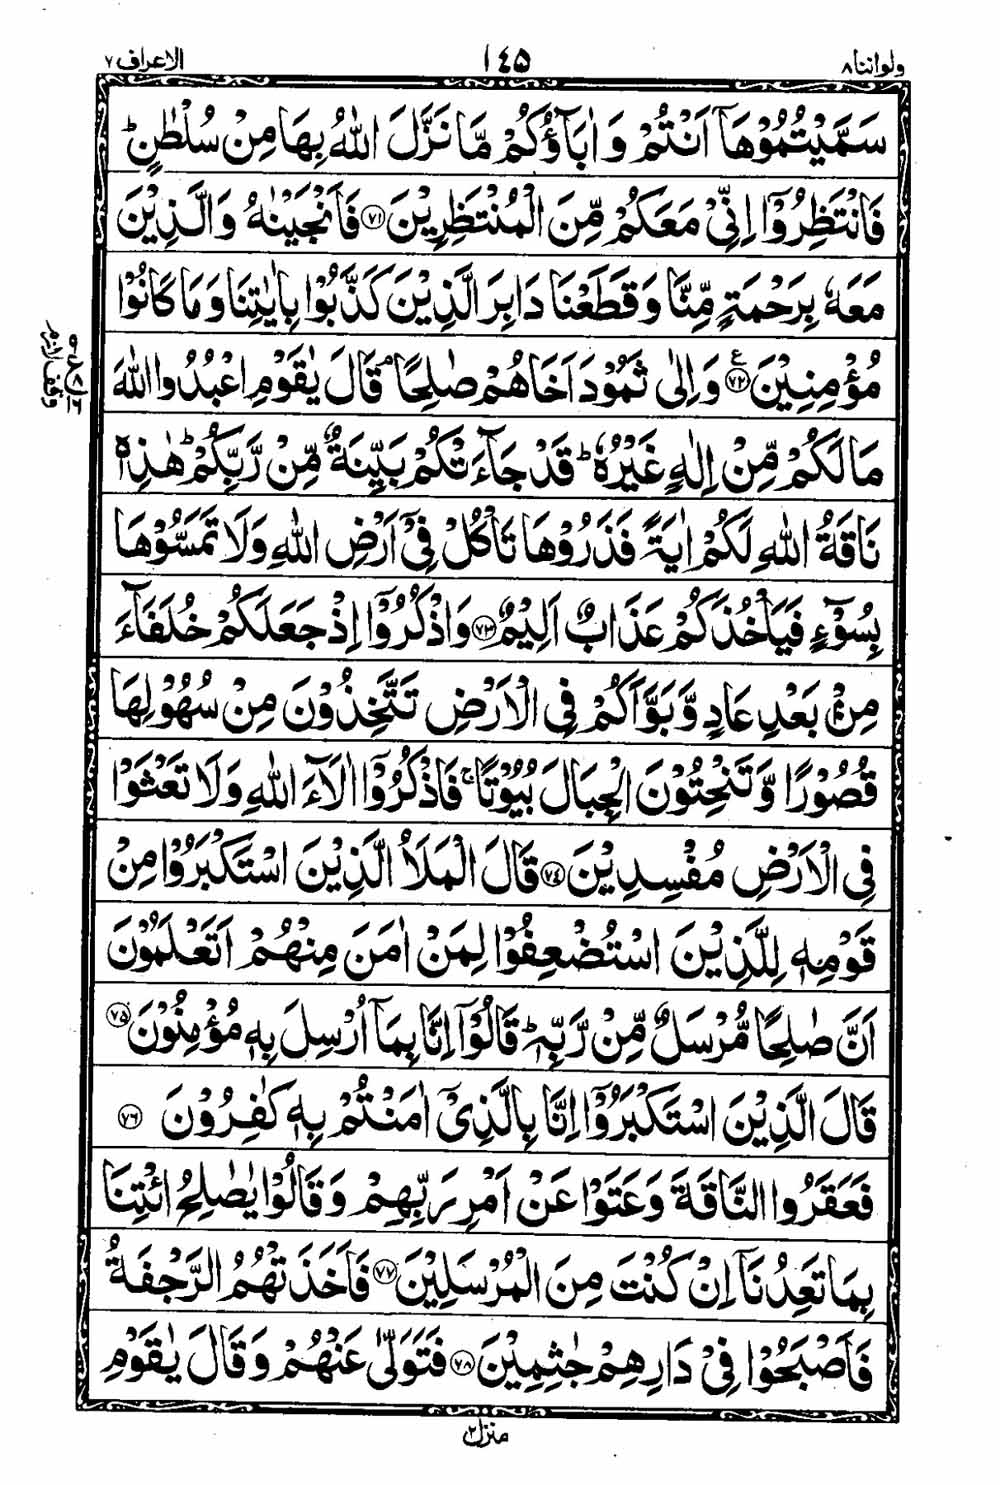 ولواننا ٨
١٤٥
الاعراف ٧
سَمَّيْتُمُوْهَاۤ اَنْتُمْ وَ اٰبَآؤُكُمْ مَّا نَزَّلَ اللّٰهُ بِهَا مِنْ سُلْطٰنٍ ؕ
فَانْتَظِرُوْۤا اِنِّیْ مَعَكُمْ مِّنَ الْمُنْتَظِرِیْنَ ﴿٧١﴾ فَاَنْجَیْنٰهُ وَ الَّذِیْنَ
مَعَهٗ بِرَحْمَةٍ مِّنَّا وَ قَطَعْنَا دَابِرَ الَّذِیْنَ كَذَّبُوْا بِاٰیٰتِنَا وَ مَا كَانُوْا
مُؤْمِنِیْنَ ﴿٧٢﴾ ع وَ اِلٰی ثَمُوْدَ اَخَاهُمْ صٰلِحًا ۘ قَالَ یٰقَوْمِ اعْبُدُوا اللّٰهَ
مَا لَكُمْ مِّنْ اِلٰهٍ غَیْرُهٗ ؕ قَدْ جَآءَتْكُمْ بَیِّنَةٌ مِّنْ رَّبِّكُمْ ؕ هٰذِهٖ
نَاقَةُ اللّٰهِ لَكُمْ اٰیَةً فَذَرُوْهَا تَاْكُلْ فِیْۤ اَرْضِ اللّٰهِ وَ لَا تَمَسُّوْهَا
بِسُوْٓءٍ فَیَاْخُذَكُمْ عَذَابٌ اَلِیْمٌ ﴿٧٣﴾ وَ اذْكُرُوْۤا اِذْ جَعَلَكُمْ خُلَفَآءَ
مِنْۢ بَعْدِ عَادٍ وَّ بَوَّاَكُمْ فِی الْاَرْضِ تَتَّخِذُوْنَ مِنْ سُهُوْلِهَا
قُصُوْرًا وَّ تَنْحِتُوْنَ الْجِبَالَ بُیُوْتًا ۚ فَاذْكُرُوْۤا اٰلَآءَ اللّٰهِ وَ لَا تَعْثَوْا
فِی الْاَرْضِ مُفْسِدِیْنَ ﴿٧٤﴾ قَالَ الْمَلَاُ الَّذِیْنَ اسْتَكْبَرُوْا مِنْ
قَوْمِهٖ لِلَّذِیْنَ اسْتُضْعِفُوْا لِمَنْ اٰمَنَ مِنْهُمْ اَتَعْلَمُوْنَ
اَنَّ صٰلِحًا مُّرْسَلٌ مِّنْ رَّبِّهٖ ؕ قَالُوْۤا اِنَّا بِمَاۤ اُرْسِلَ بِهٖ مُؤْمِنُوْنَ ﴿٧٥﴾
قَالَ الَّذِیْنَ اسْتَكْبَرُوْۤا اِنَّا بِالَّذِیْۤ اٰمَنْتُمْ بِهٖ كٰفِرُوْنَ ﴿٧٦﴾
فَعَقَرُوا النَّاقَةَ وَ عَتَوْا عَنْ اَمْرِ رَبِّهِمْ وَ قَالُوْا یٰصٰلِحُ ائْتِنَا
بِمَا تَعِدُنَاۤ اِنْ كُنْتَ مِنَ الْمُرْسَلِیْنَ ﴿٧٧﴾ فَاَخَذَتْهُمُ الرَّجْفَةُ
فَاَصْبَحُوْا فِیْ دَارِهِمْ جٰثِمِیْنَ ﴿٧٨﴾ فَتَوَلّٰی عَنْهُمْ وَ قَالَ یٰقَوْمِ
منزل ٢
وقف لازم